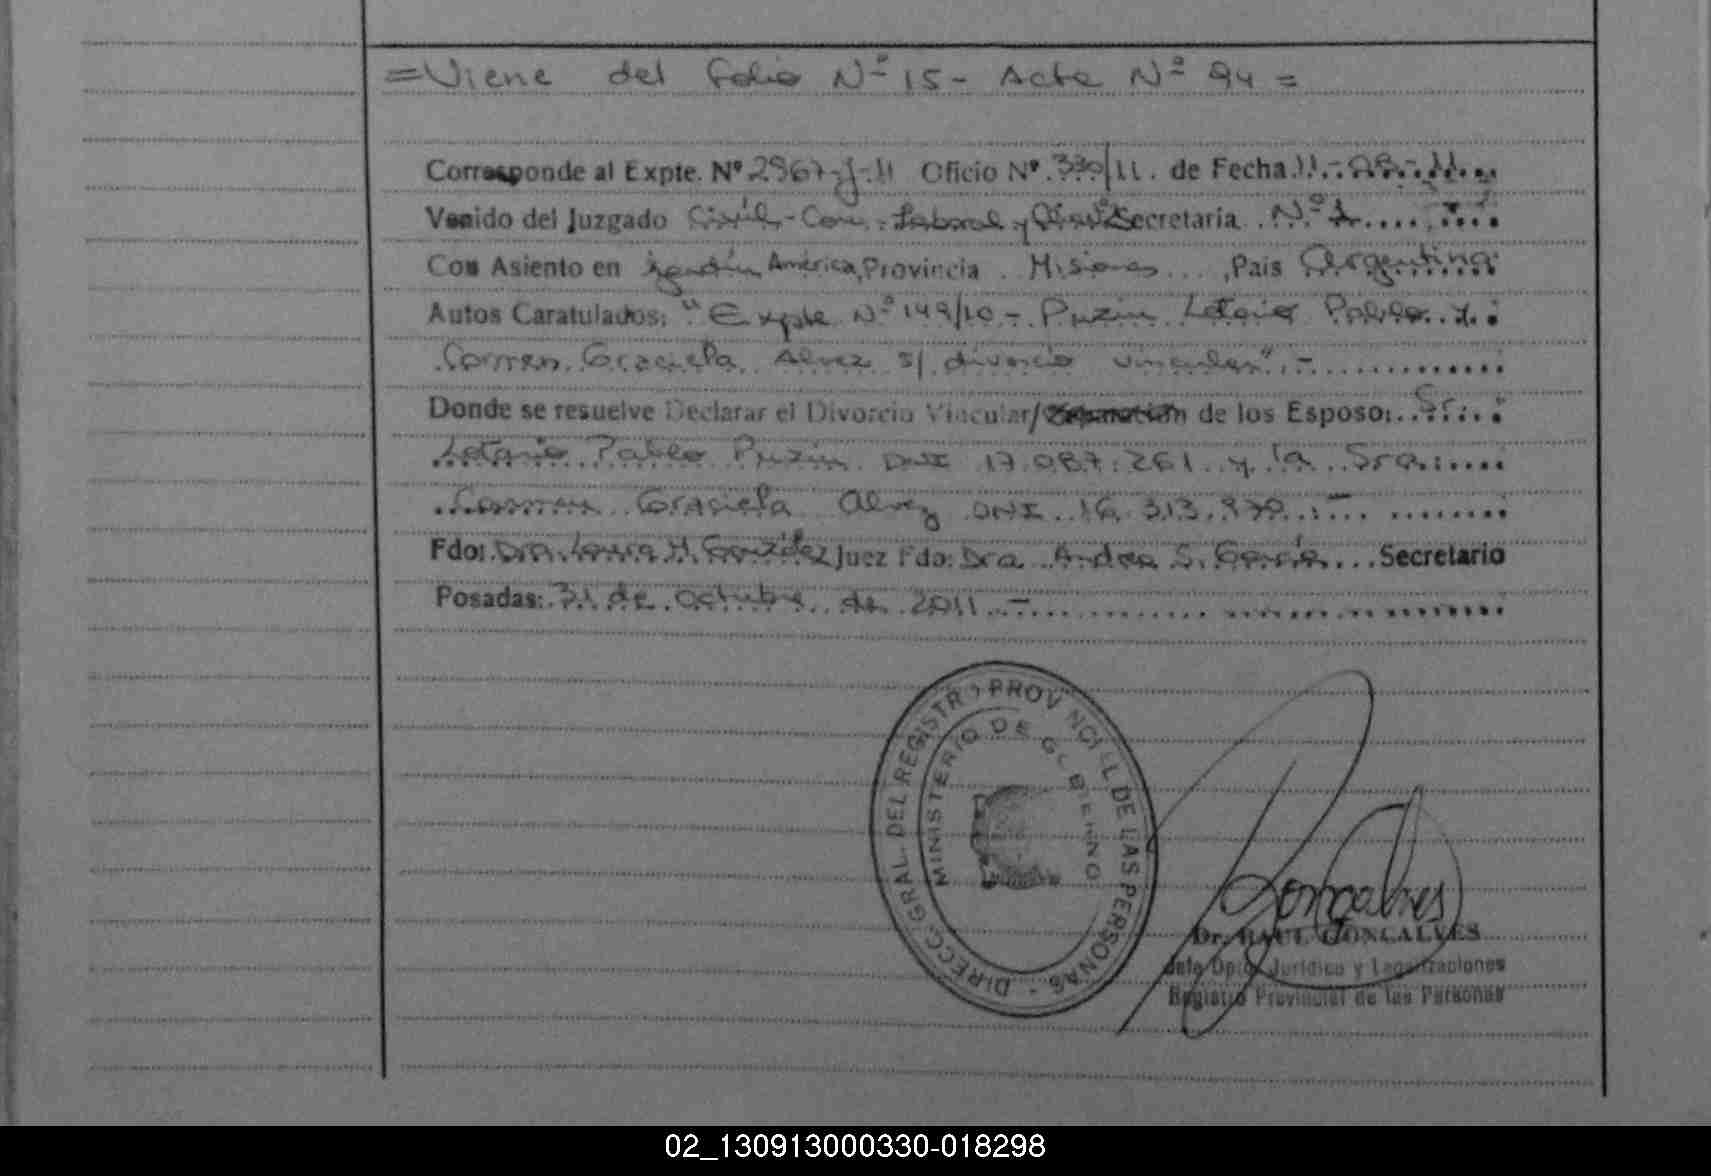 =Viene del folio Nº 15 - Acta Nº 94 =
Corresponde al Expte. Nº 2967-J-11 Oficio Nº 330/11. de Fecha 11-08-11
Venido del Juzgado Civil - Com. - Laboral y Secretaria Nº 1
Con Asiento en América, Provincia Misiones, País Argentina
Autos Caratulados: "Expte Nº 149/10 - Puzin Lotario Pablo y
Carmen Graciela Alvez s/ divorcio vincular".-
Donde se resuelve Declarar el Divorcio Vincular/Separación de los Esposo: Sr.
Lotario Pablo Puzin DNI 17.087.261 y la Sra.
Carmen Graciela Alvez DNI 16.313.
Fdo: Dra. H. González Juez Fdo: Dra. Andrea S. García Secretario
Posadas: 31 de octubre de 2011.-
DIRECC. GRAL. DEL REGISTRO PROVINCIAL DE LAS PERSONAS -
MINISTERIO DE GOBIERNO
Gonçalves
Dr. RAUL GONCALVES
Jefe Dpto. Jurídico y Legalizaciones
Registro Provincial de las Personas
02_130913000330-018298